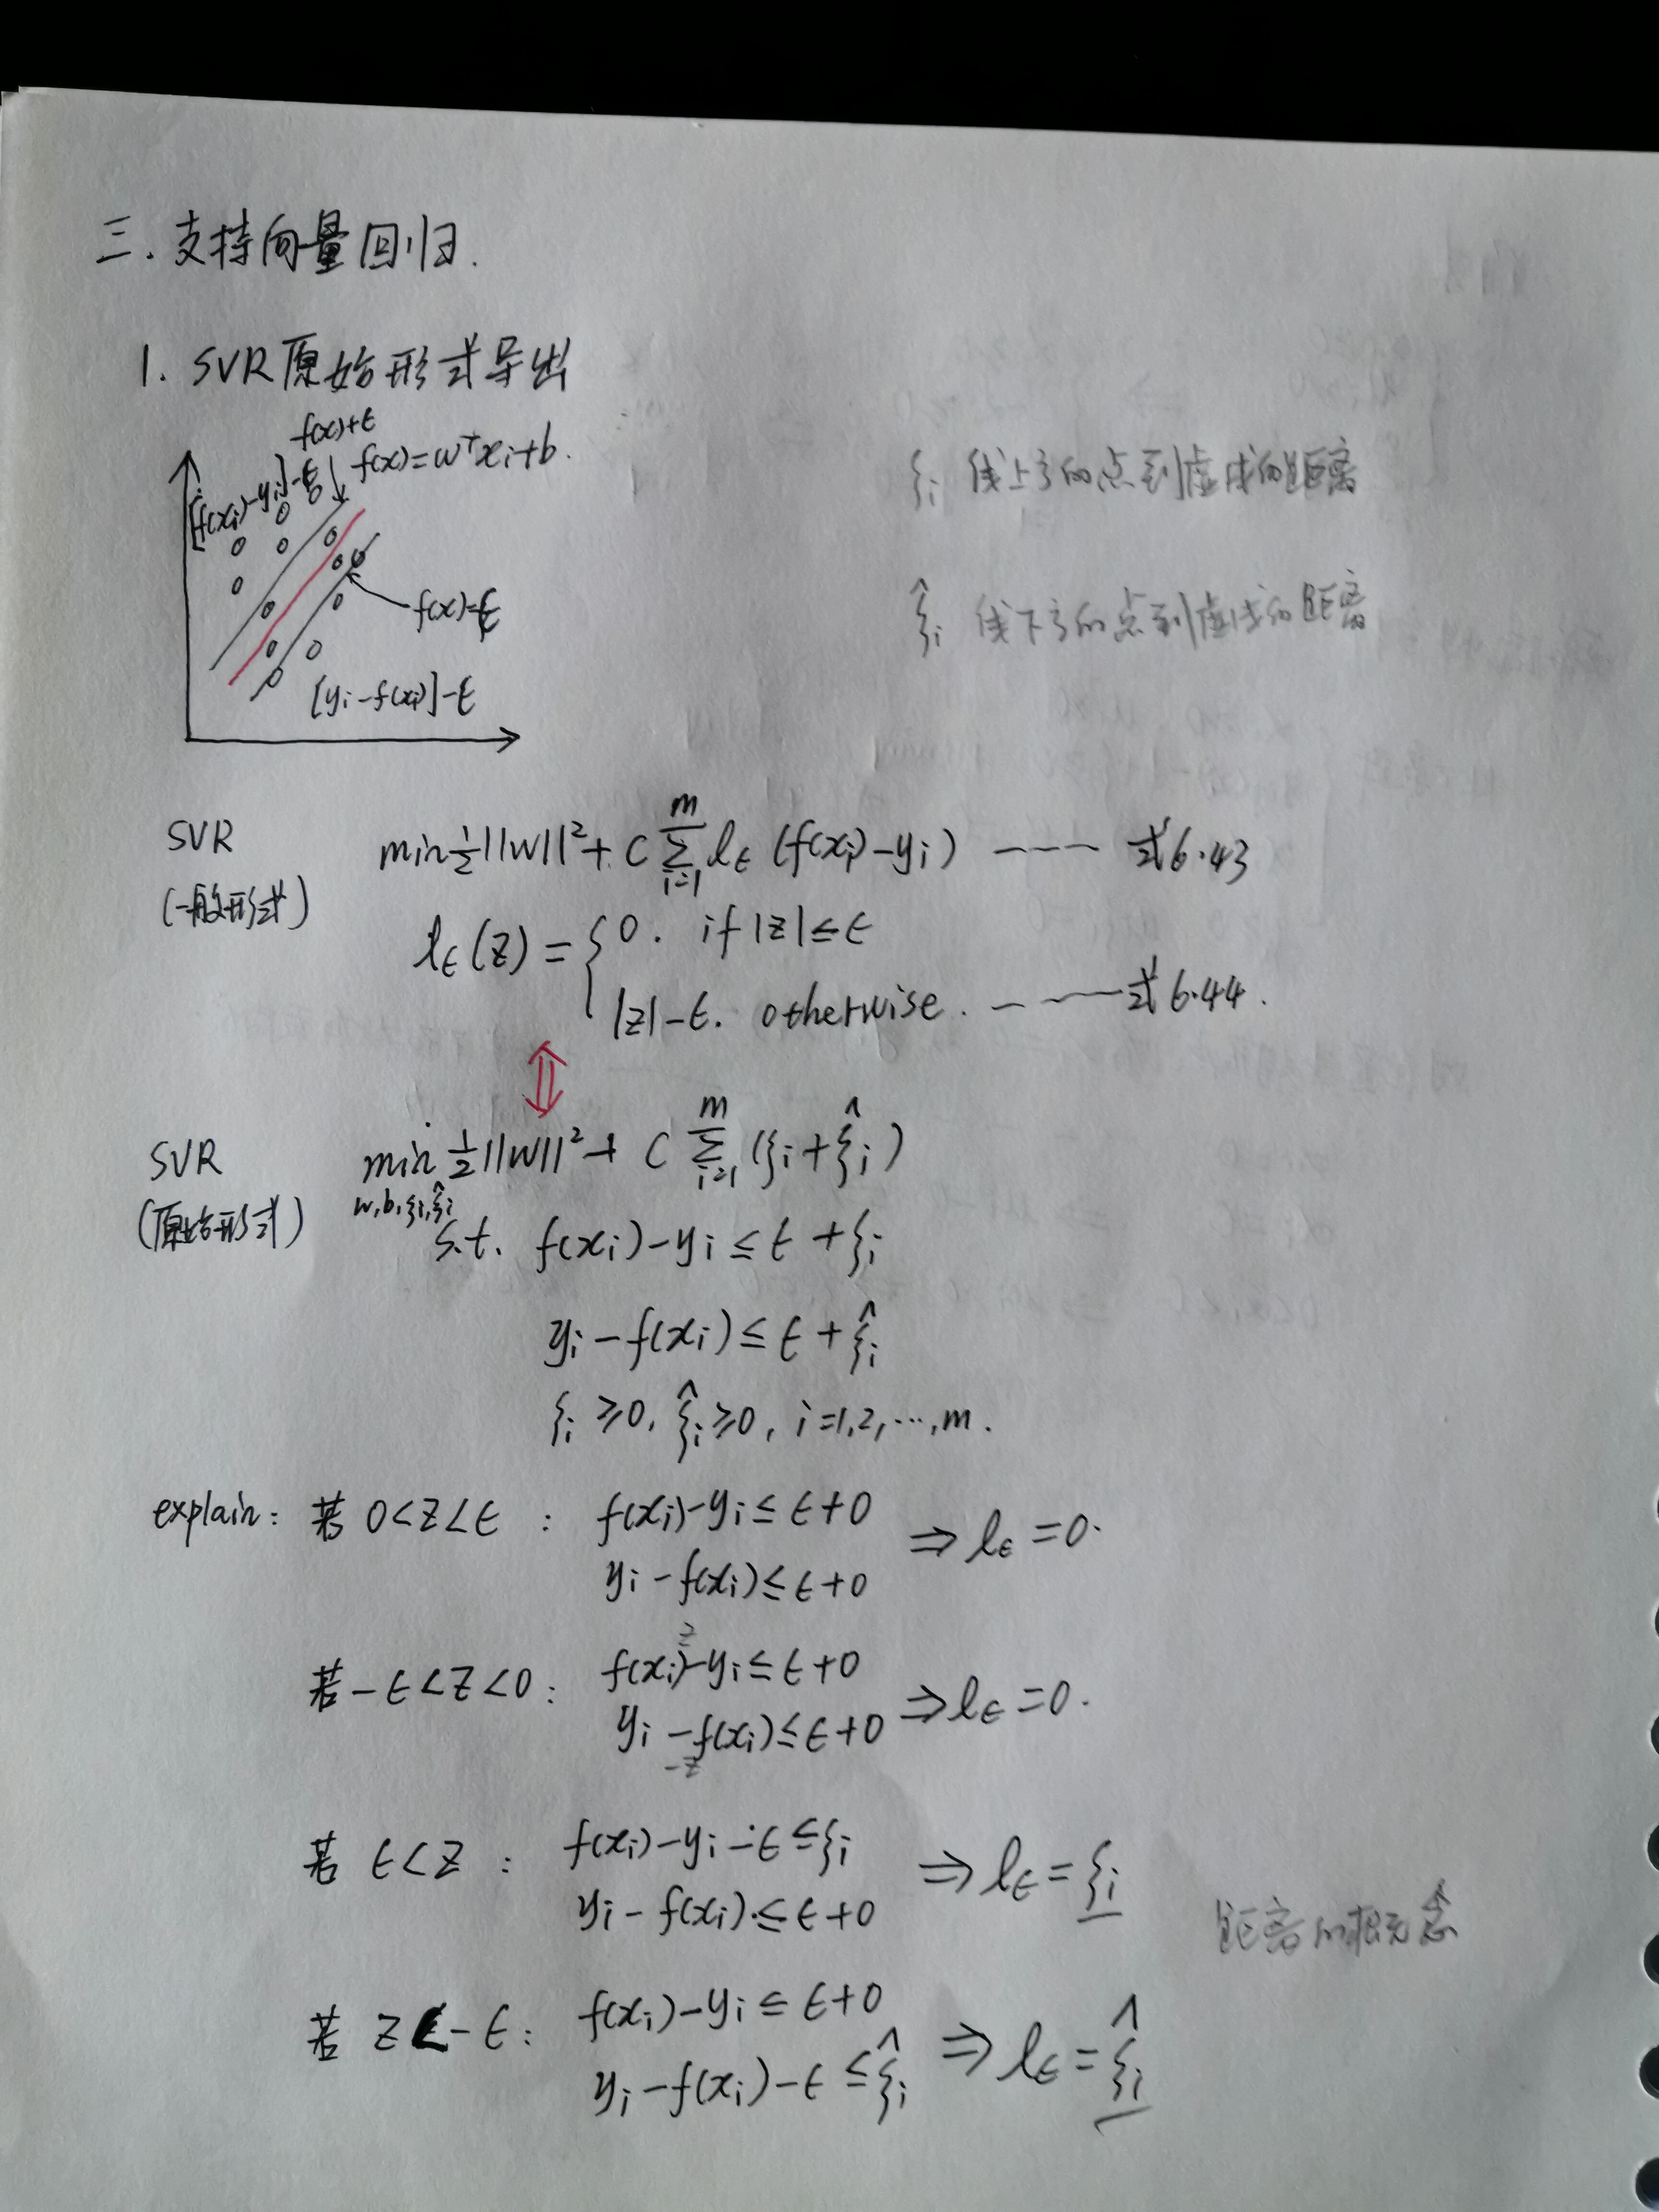 三. 支持向量回归.
1. SVR原始形式导出
f(x)+ϵ
f(x)=wᵀxi+b.
[f(xi)-yi]-ϵ
f(x)-ϵ
[yi-f(xi)]-ϵ
ξi 线上方的点到虚线的距离
ξ̂i 线下方的点到虚线的距离
SVR (一般形式)
min ½||w||² + C ∑_{i=1}^{m} lϵ (f(xi)-yi) ---- 式6.43
lϵ(z) = { 0. if |z|≤ϵ
|z|-ϵ. otherwise. ---- 式6.44.
⇕
SVR (原始形式)
min ½||w||² + C ∑_{i=1}^{m} (ξi+ξ̂i)
w,b,ξi,ξ̂i
s.t. f(xi)-yi ≤ ϵ+ξi
yi-f(xi) ≤ ϵ+ξ̂i
ξi ≥0, ξ̂i ≥0, i=1,2,…,m.
explain: 若 0<z<ϵ : f(xi)-yi ≤ ϵ+0
yi-f(xi) ≤ ϵ+0 ⇒ lϵ=0.
z
若 -ϵ<z<0 : f(xi)-yi ≤ ϵ+0
yi-f(xi) ≤ ϵ+0 ⇒ lϵ=0.
-z
若 ϵ<z : f(xi)-yi-ϵ ≤ ξi
yi-f(xi) ≤ ϵ+0 ⇒ lϵ=ξi
距离的概念
若 z<-ϵ : f(xi)-yi ≤ ϵ+0
yi-f(xi)-ϵ ≤ ξ̂i ⇒ lϵ=ξ̂i